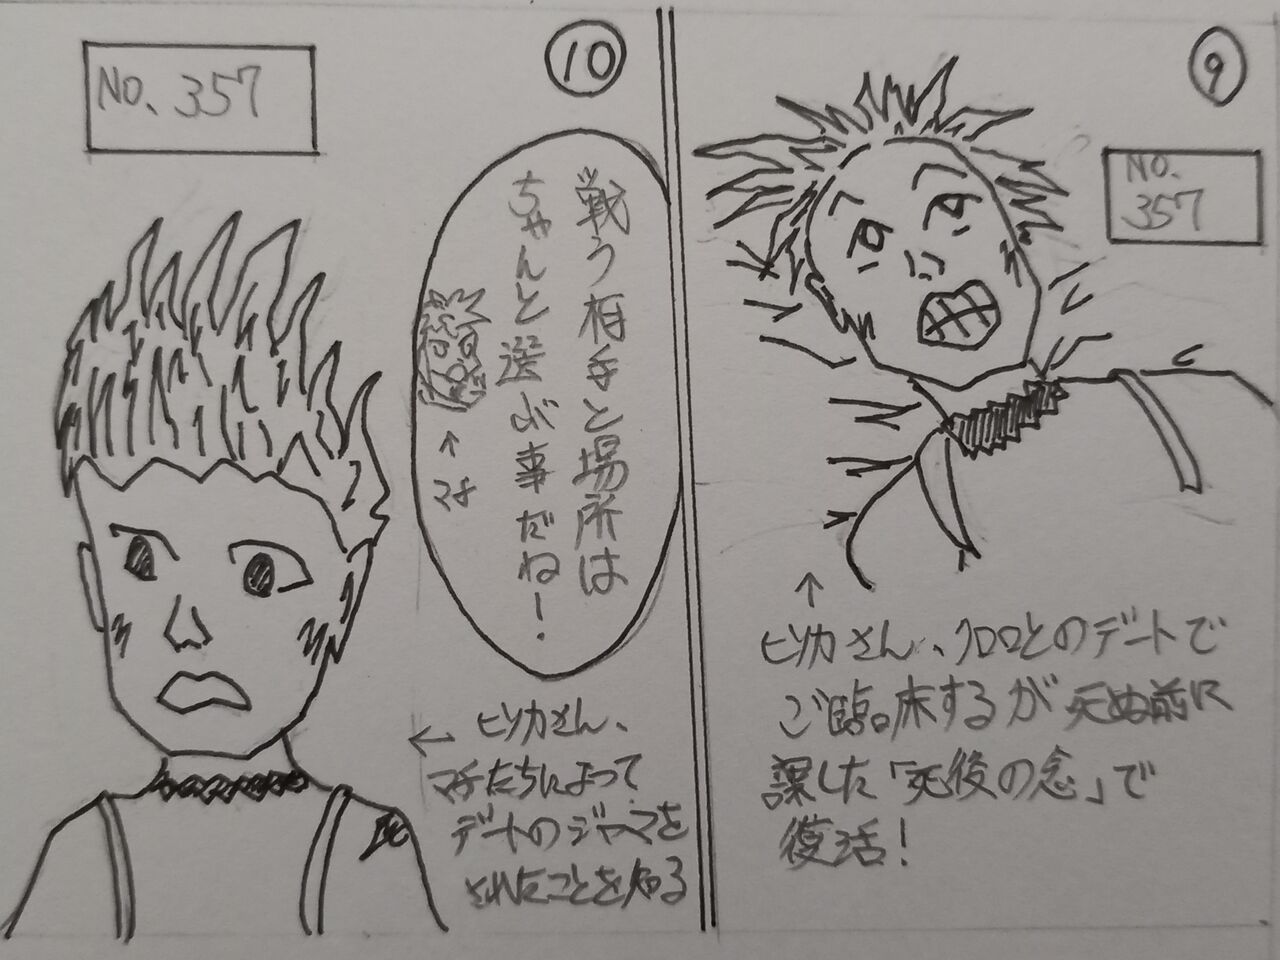 ⑨
NO.
357
ヒソカさん、クロロとのデートで
ご臨床するが死ぬ前に
課した「死後の念」で
復活!
⑩
NO. 357
戦う相手と場所は
ちゃんと選ぶ事だね!
↑マチ
← ヒソカさん、
マチたちによって
デートのジャマを
されたことを知る